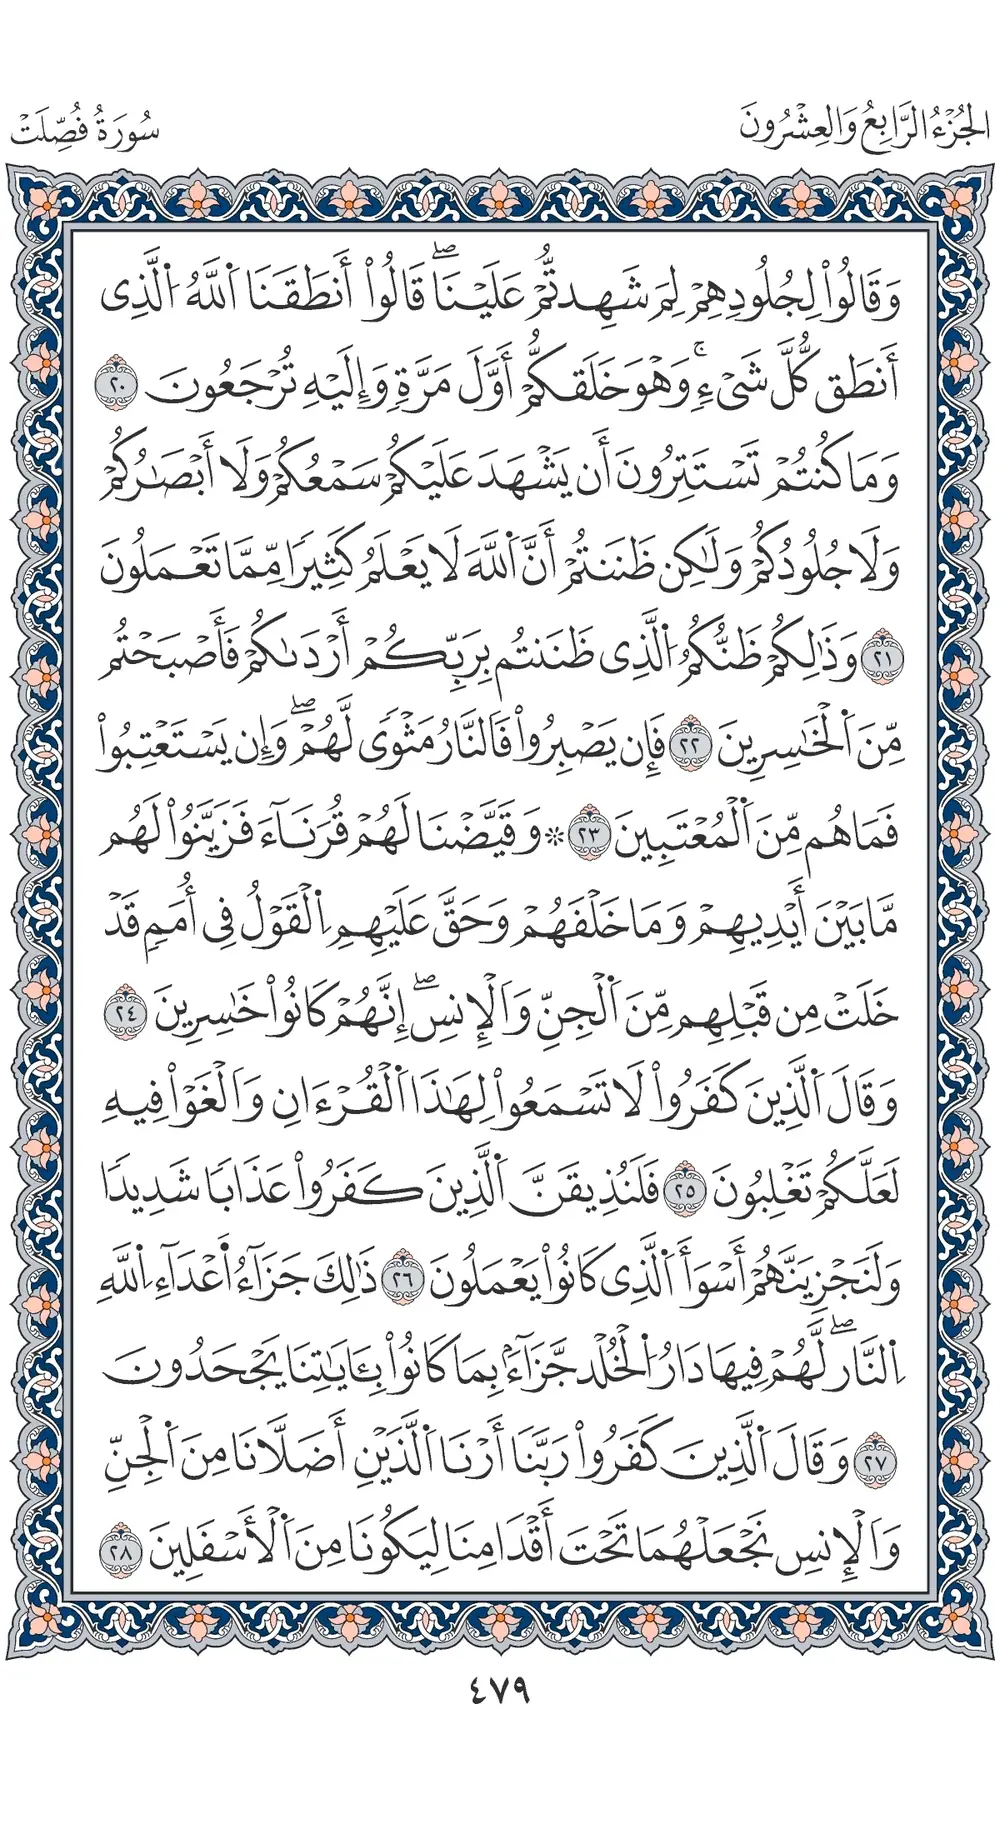 الجُزْءُ الرَّابِعُ وَالعِشْرُونَ
سُورَةُ فُصِّلَتْ
وَقَالُواْ لِجُلُودِهِمْ لِمَ شَهِدتُّمْ عَلَيْنَاۖ قَالُواْ أَنطَقَنَا اَ۬للَّهُ اُ۬لَّذِى
أَنطَق كُّلَّ شَىْءٖۚ وَهْوَ خَلَقكُّمْ أَوَّلَ مَرَّةٖ وَإِلَيْهِ تُرْجَعُونَ ٢٠
وَمَا كُنتُمْ تَسْتَتِرُونَ أَن يَشْهَدَ عَلَيْكُمْ سَمْعُكُمْ وَلَا أَبْصَٰرُكُمْ
وَلَا جُلُودُكُمْ وَلَٰكِن ظَنَنتُمْ أَنَّ اَ۬للَّهَ لَا يَعْلَمُ كَثِيرٗا مِّمَّا تَعْمَلُونَ
٢١ وَذَٰلِكُمْ ظَنُّكُمُ اُ۬لَّذِى ظَنَنتُم بِرَبِّكُمْ أَرْدَىٰكُمْ فَأَصْبَحْتُم
مِّنَ اَ۬لْخَٰسِرِينَ ٢٢ فَإِن يَصْبِرُواْ فَالنَّارُ مَثْوٗى لَّهُمْۖ وَإِن يَسْتَعْتِبُواْ
فَمَا هُم مِّنَ اَ۬لْمُعْتَبِينَ ٢٣ ۞ وَقَيَّضْنَا لَهُمْ قُرَنَآءَ فَزَيَّنُواْ لَهُم
مَّا بَيْنَ أَيْدِيهِمْ وَمَا خَلْفَهُمْ وَحَقَّ عَلَيْهِمِ اِ۬لْقَوْلُ فِى أُمَمٖ قَدْ
خَلَتْ مِن قَبْلِهِم مِّنَ اَ۬لْجِنِّ وَالْإِنسِۖ إِنَّهُمْ كَانُواْ خَٰسِرِينَ ٢٤
وَقَالَ اَ۬لَّذِينَ كَفَرُواْ لَا تَسْمَعُواْ لِهَٰذَا اَ۬لْقُرْءَانِ وَالْغَوْاْ فِيهِ
لَعَلَّكُمْ تَغْلِبُونَ ٢٥ فَلَنُذِيقَنَّ اَ۬لَّذِينَ كَفَرُواْ عَذَابٗا شَدِيدٗا
وَلَنَجْزِيَنَّهُمْ أَسْوَأَ اَ۬لَّذِى كَانُواْ يَعْمَلُونَ ٢٦ ذَٰلِكَ جَزَآءُ اَعْدَآءِ اِ۬للَّهِ
اِ۬لنَّارۖ لَّهُمْ فِيهَا دَارُ اُ۬لْخُلْد جَّزَآءَۢ بِمَا كَانُواْ بِـَٔايَٰتِنَا يَجْحَدُونَ
٢٧ وَقَالَ اَ۬لَّذِينَ كَفَرُواْ رَبَّنَا أَرْنَا اَ۬لَّذَيْنِ أَضَلَّانَا مِنَ اَ۬لْجِنِّ
وَالْإِنسِ نَجْعَلْهُمَا تَحْتَ أَقْدَامِنَا لِيَكُونَا مِنَ اَ۬لْأَسْفَلِينَ ٢٨
٤٧٩